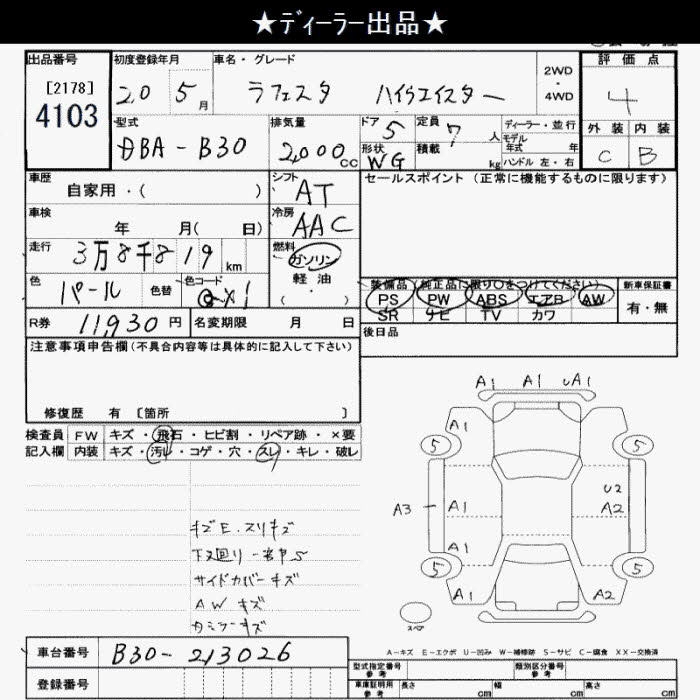 ★ディーラー出品★
出品番号 初度登録年月 車名・グレード 2WD・4WD 評価点
[2178] 20 5月 ラフェスタ ハイウェイスター 4
4103
型式 排気量 ドア 定員 ディーラー・並行 外装 内装
DBA-B30 2,000cc 5 7人 モデル年式 年 C B
形状 WG 積載 kg ハンドル 左・右
車歴 シフト セールスポイント(正常に機能するものに限ります)
自家用・( ) AT
車検 冷房
年 月( 日) AAC
走行 燃料
3万8千8 19 km ガソリン
軽油
( ・ )
色 色替 色コード 装備品(純正品に限り○をつけてください) 新車保証書
パール QX1 PS PW ABS エアB AW 有・無
SR ナビ TV カワ
R券 11,930円 名変期限 月 日 後日品
注意事項申告欄(不具合内容等は具体的に記入して下さい)
修復歴 有 [箇所 ]
検査員 FW キズ・飛石・ヒビ割・リペア跡・×要
記入欄 内装 キズ・汚れ・コゲ・穴・スレ・キレ・破レ
A1 A1 UA1
A1
5 5
U2
A3 A1 A2
A1
5 5
A1 A2
スペア
キズE.スリキズ
下廻り一部サビ
サイドカバーキズ
AWキズ
A-キズ E-エクボ U-凹み W-補修跡 S-サビ C-腐食 XX-交換済
車台番号 B30-213026 型式指定番号 参考 類別区分番号 参考
登録番号 車庫証明用 参考 長さ cm 幅 cm 高さ cm